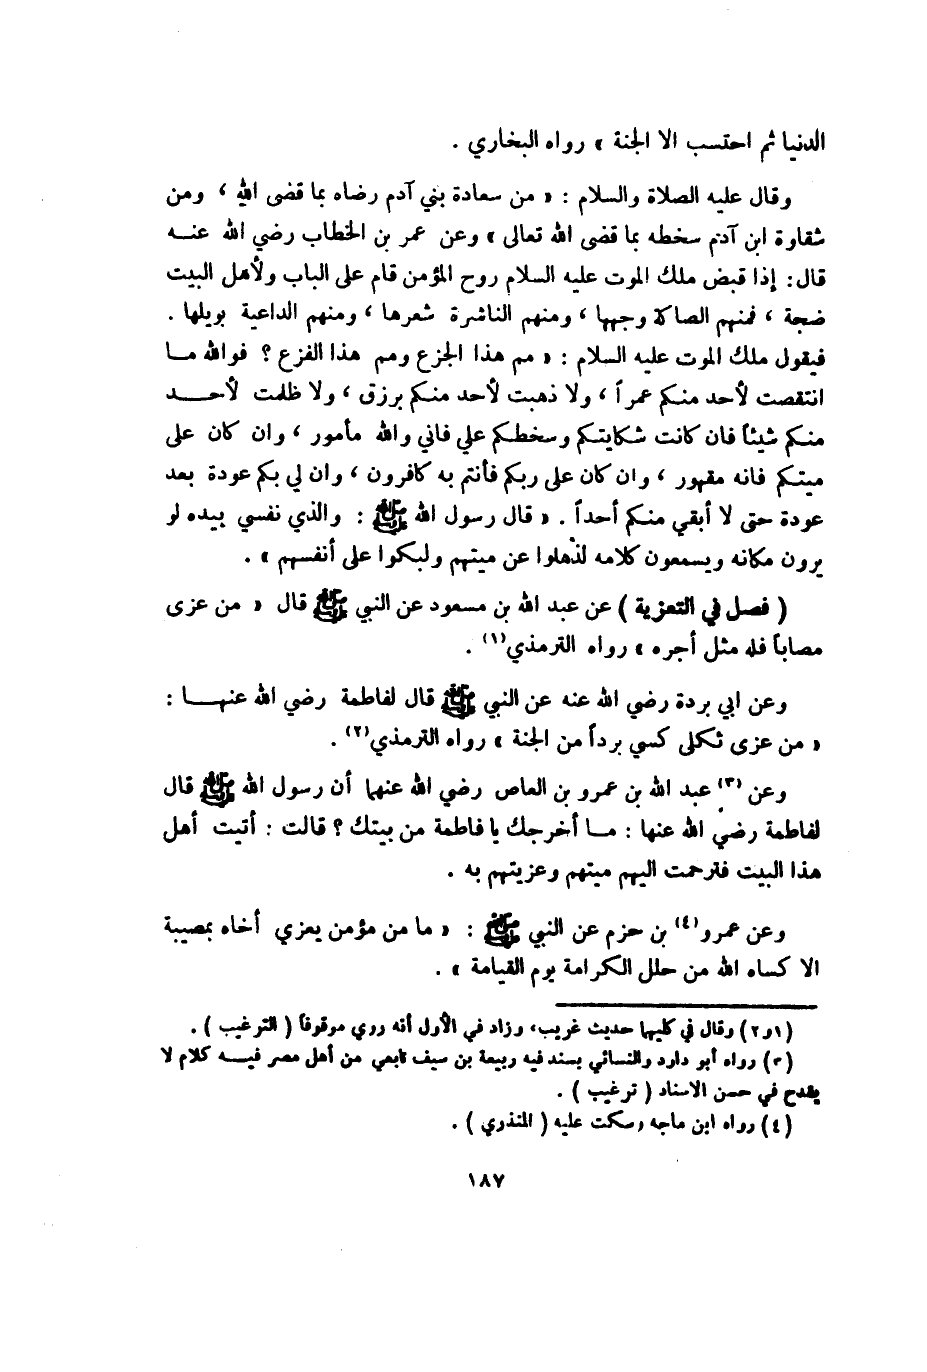 الدنيا ثم احتسب الا الجنة » رواه البخاري .
وقال عليه الصلاة والسلام : « من سعادة بني آدم رضاه بما قضى الله ، ومن
شقاوة ابن آدم سخطه بما قضى الله تعالى » وعن عمر بن الخطاب رضي الله عنــه
قال: إذا قبض ملك الموت عليه السلام روح المؤمن قام على الباب ولأهل البيت
ضجة ، فمنهم الصاكة وجهها ، ومنهم الناشرة شعرها ، ومنهم الداعية بويلها .
فيقول ملك الموت عليه السلام : « مم هذا الجزع ومم هذا الفزع ؟ فوالله مــا
انتقصت لأحد منكم عمراً ، ولا ذهبت لأحد منكم برزق ، ولا ظلمت لأحــــد
منكم شيئاً فان كانت شكايتكم وسخطكم علي فاني والله مأمور ، وان كان على
ميتكم فانه مقهور ، وان كان على ربكم فأنتم به كافرون ، وان لي بكم عودة بعد
عودة حتى لا أبقي منكم أحداً . « قال رسول الله ﷺ : والذي نفسي بيده لو
يرون مكانه ويسمعون كلامه لذهلوا عن ميتهم ولبكوا على أنفسهم » .
( فصل في التعزية ) عن عبد الله بن مسعود عن النبي ﷺ قال « من عزى
مصاباً فله مثل أجره » رواه الترمذي(١) .
وعن ابي بردة رضي الله عنه عن النبي ﷺ قال لفاطمة رضي الله عنهـــا :
« من عزى ثكلى كسي برداً من الجنة » رواه الترمذي(٢) .
وعن (٣) عبد الله بن عمرو بن العاص رضي الله عنهما أن رسول الله ﷺ قال
لفاطمة رضي الله عنها : مــا أخرجك يا فاطمة من بيتك ؟ قالت : أتيت أهل
هذا البيت فترحمت اليهم ميتهم وعزيتهم به .
وعن عمرو(٤) بن حزم عن النبي ﷺ : « ما من مؤمن يعزي أخاه بمصيبة
الا كساه الله من حلل الكرامة يوم القيامة » .
(١و٢) وقال في كليهما حديث غريب، وزاد في الأول أنه روي موقوفاً ( الترغيب ) .
(٣) رواه أبو داود والنسائي بسند فيه ربيعة بن سيف تابعي من أهل مصر فيــه كلام لا
يقدح في حسن الاسناد ( ترغيب ) .
(٤) رواه ابن ماجه وسكت عليه ( المنذري ) .
١٨٧